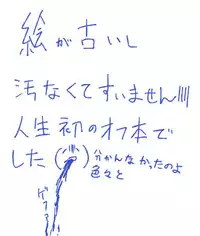 絵が古いし
汚なくてすいません||||
人生初のオフ本で
した( )分かんなかったのよ
色々と